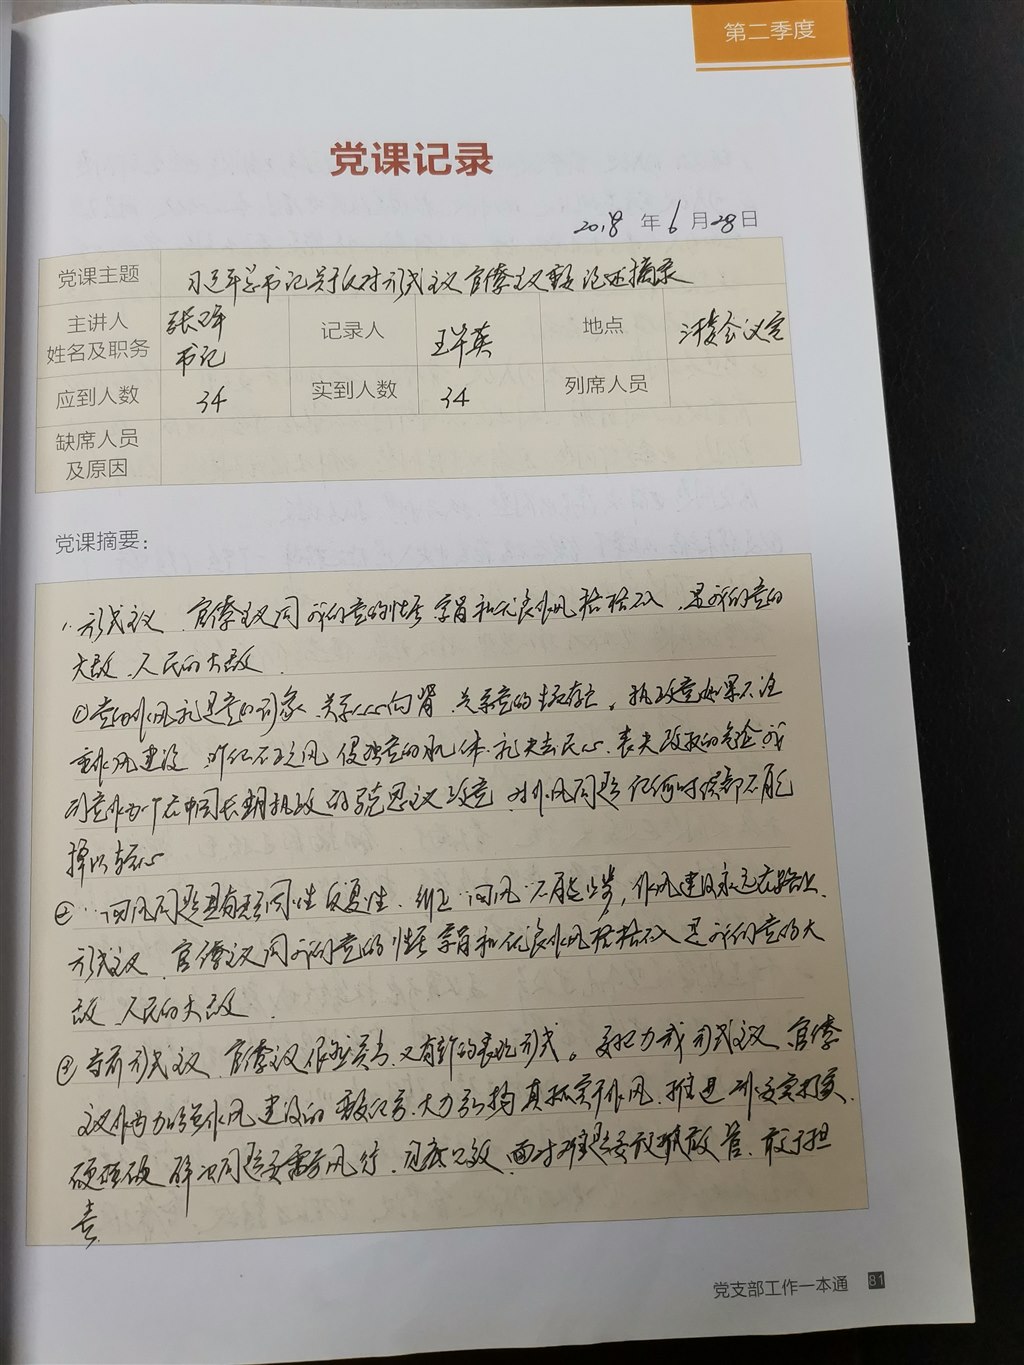 第二季度
党课记录
2018 年 6 月 28 日
党课主题 习近平总书记关于反对形式主义官僚主义重要论述摘录
主讲人 姓名及职务 书记 记录人 地点 会议室
应到人数 34 实到人数 34 列席人员
缺席人员
及原因
党课摘要：
1、形式主义、官僚主义同我们党的性质宗旨和优良作风格格不入，是我们党的
大敌、人民的大敌．
①党的作风就是党的形象，关系人心向背，关系党的生死存亡。执政党如果不注
重作风建设，听任不正之风侵蚀党的肌体，就会失去民心、丧失政权的危险。我
们党作为一个在中国长期执政的马克思主义政党，对作风问题任何时候都不能
掉以轻心
②"四风"问题具有顽固性反复性．纠正"四风"不能止步，作风建设永远在路上．
形式主义、官僚主义同我们党的性质宗旨和优良作风格格不入，是我们党的大
敌、人民的大敌．
③当前形式主义、官僚主义依然突出，又有新的表现形式。要把力戒形式主义、官僚
主义作为加强作风建设的重要任务，大力弘扬真抓实干作风，推进
硬碰硬，解决问题要雷厉风行、见底见效，面对难题要敢抓敢管、敢于担
责．
党支部工作一本通 81